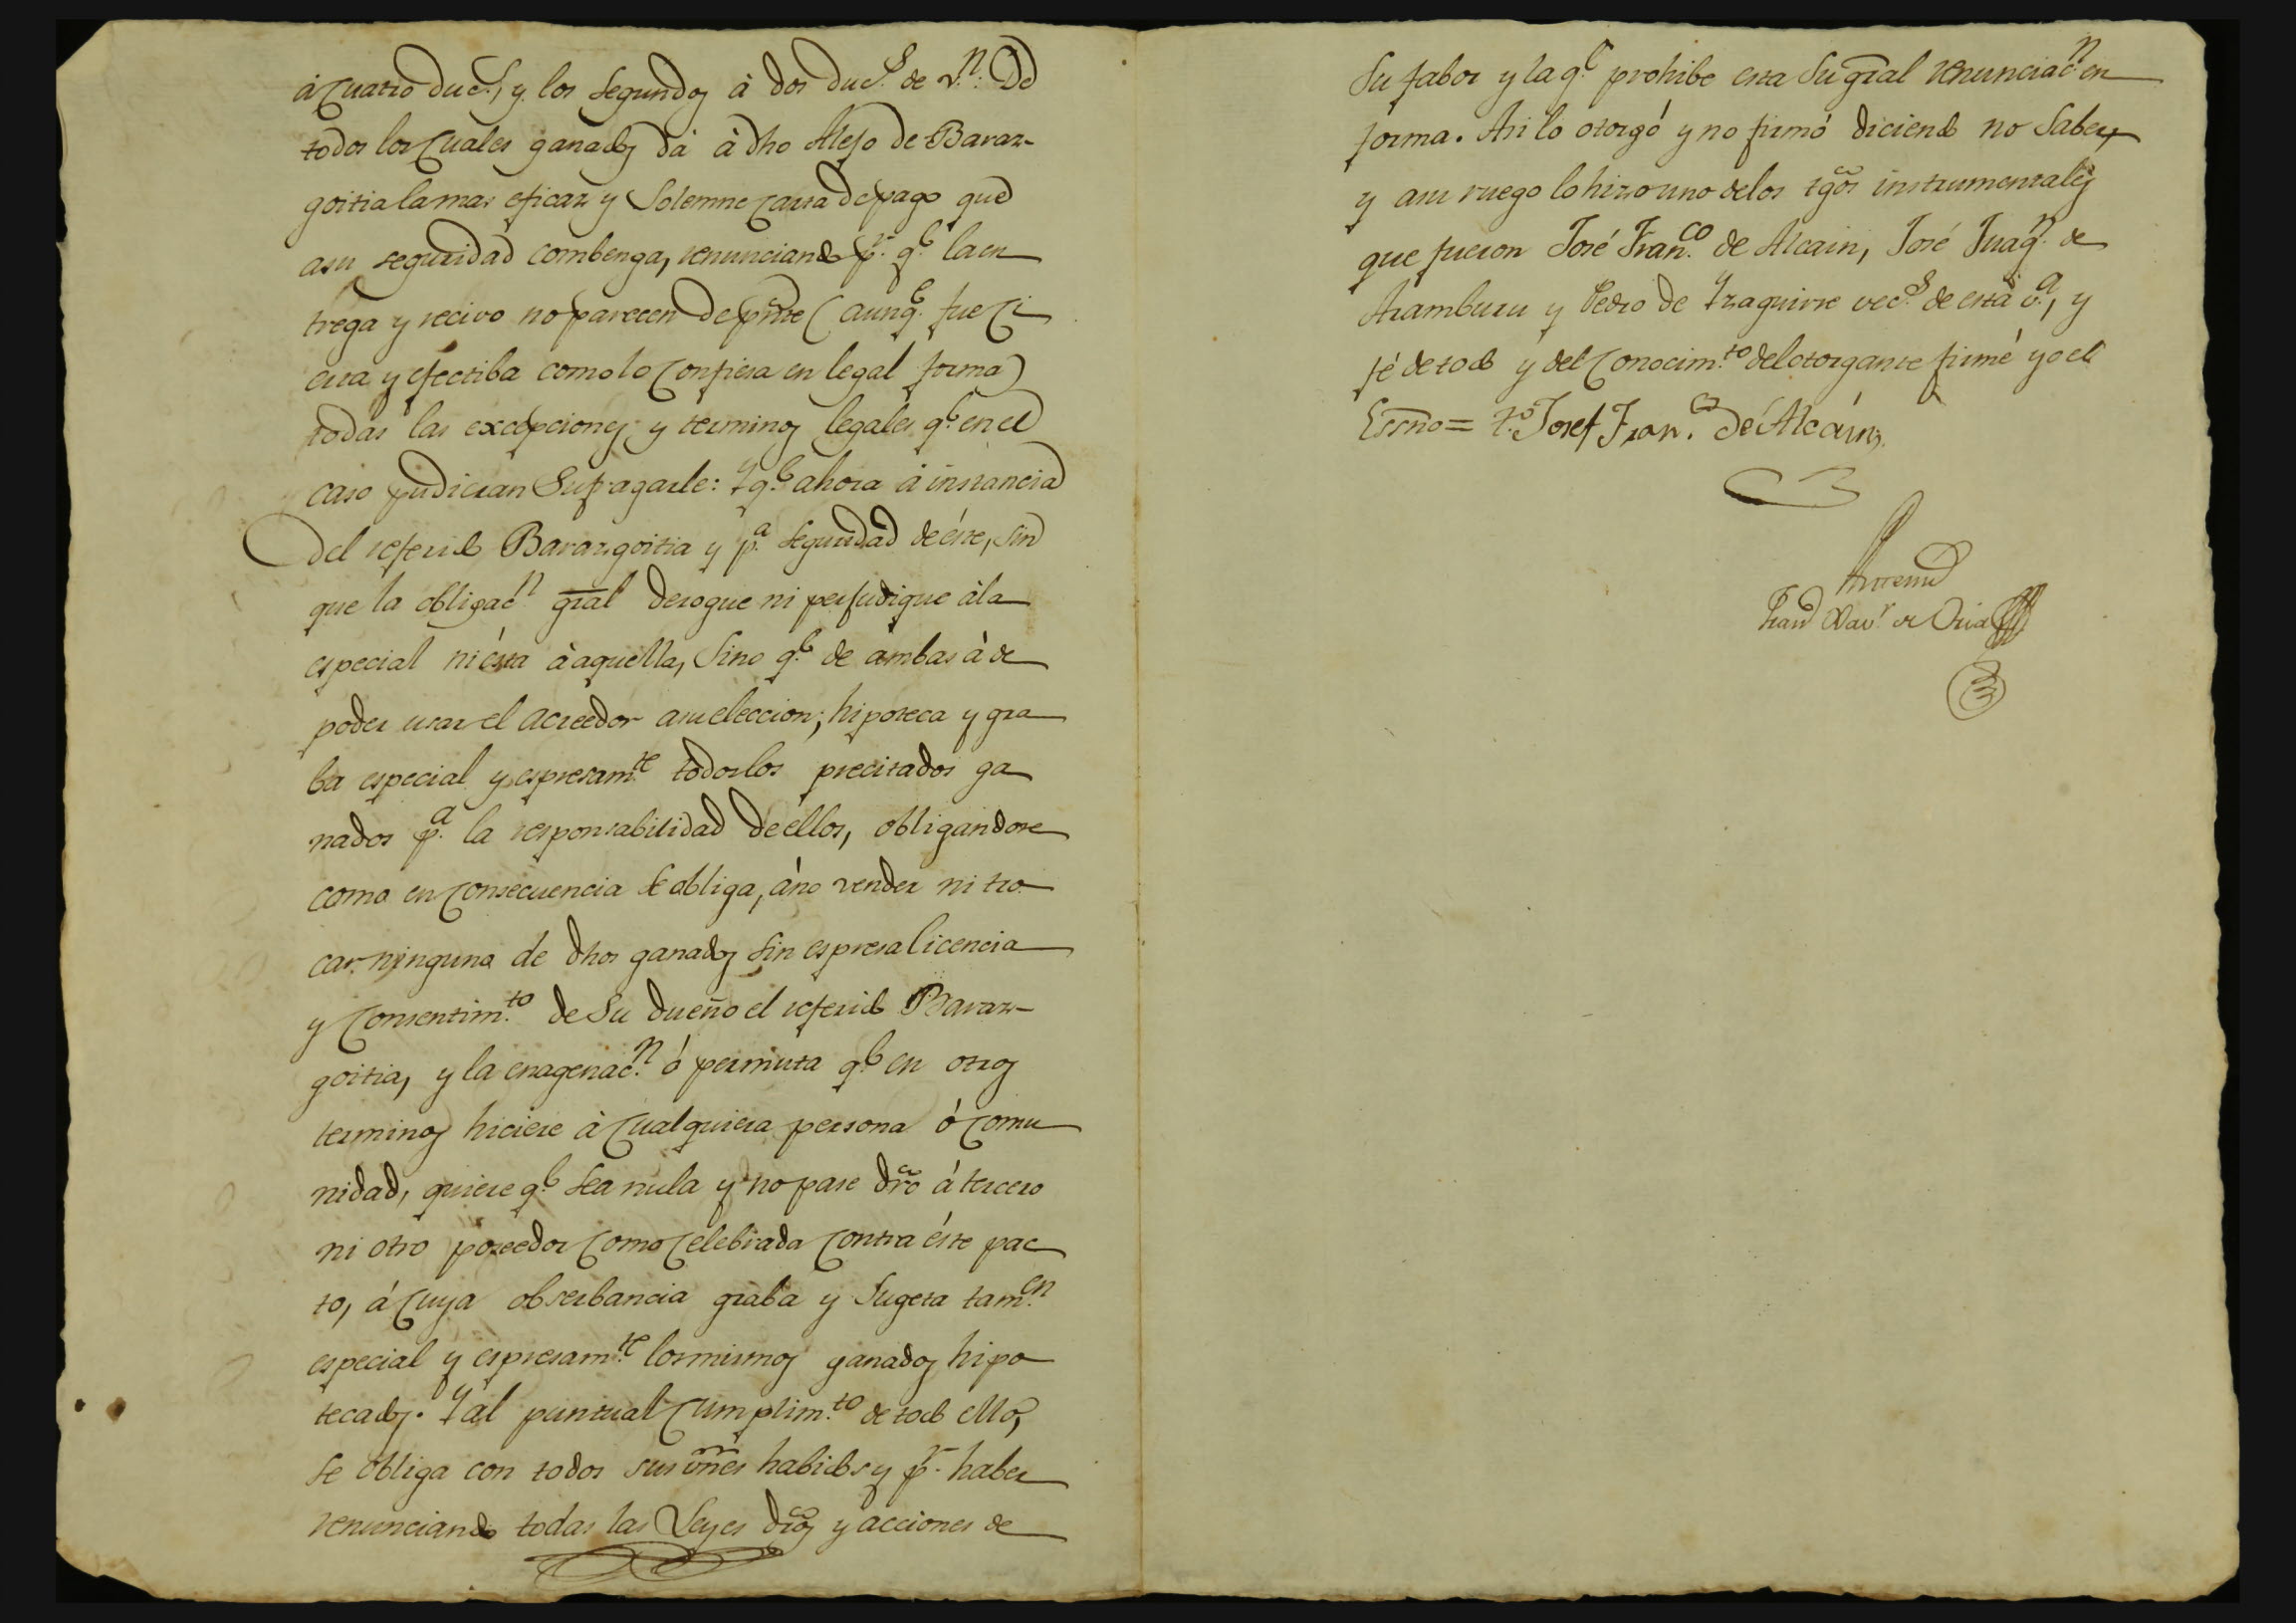 à cuatro duc.s, y los segundos à dos duc.s de v.n: De
todos los cuales ganados dá à dho Alejo de Baraz-
goitia la mas eficaz y solemne carta de pago que
a su seguridad combenga, renunciando p.r q.e la en
trega y recivo no parecen de pnte (aunq.e fue ci
erta y efectiba como lo confiesa en legal forma)
todas las excepciones y terminos legales q.e en el
caso pudieran sufragarle: Y q.e ahora à instancia
del referido Barazgoitia y p.a seguridad de éste, sin
que la obligac.n gral derogue ni perjudique à la
especial ni ésta à aquella, sino q.e de ambas à de
poder usar el acreedor a su eleccion; hipoteca y gra
ba especial y espresam.te todos los precitados ga
nados p.a la responsabilidad de ellos, obligandose
como en consecuencia se obliga, áno vender ni tro
car ninguno de dhos ganados sin espresa licencia
y consentim.to de su dueño el referido Baraz-
goitia, y la enagenac.n ó permuta q.e en otros
terminos hiciere à cualquiera persona ó comu
nidad, quiere q.e sea nula y no pase dro á tercero
ni otro poseedor como celebrada contra éste pac
to, á cuya obserbancia graba y sugeta tam.en
especial y espresam.te los mismos ganados hipo
tecados. Y al puntual cumplim.to de todo ello,
se obliga con todos sus vnes habidos y p.r haber
renunciando todas las Leyes dros y acciones de
su fabor y la q.e prohibe esta su gral renunciac.n en
forma. Asi lo otorgó y no firmó diciendo no saber,
y a su ruego lo hizo uno de los tgos instrumentales
que fueron José Fran.co de Alcain, José Juaq.n de
Aramburu y Pedro de Yzaguirre vec.s de esta v.a, y
fé de todo y del conocim.to del otorgante firmé yo el
Esrno = t.o Josef Fran.co de Alcáin,
Antemi
Fran.co Xav.r de Oria